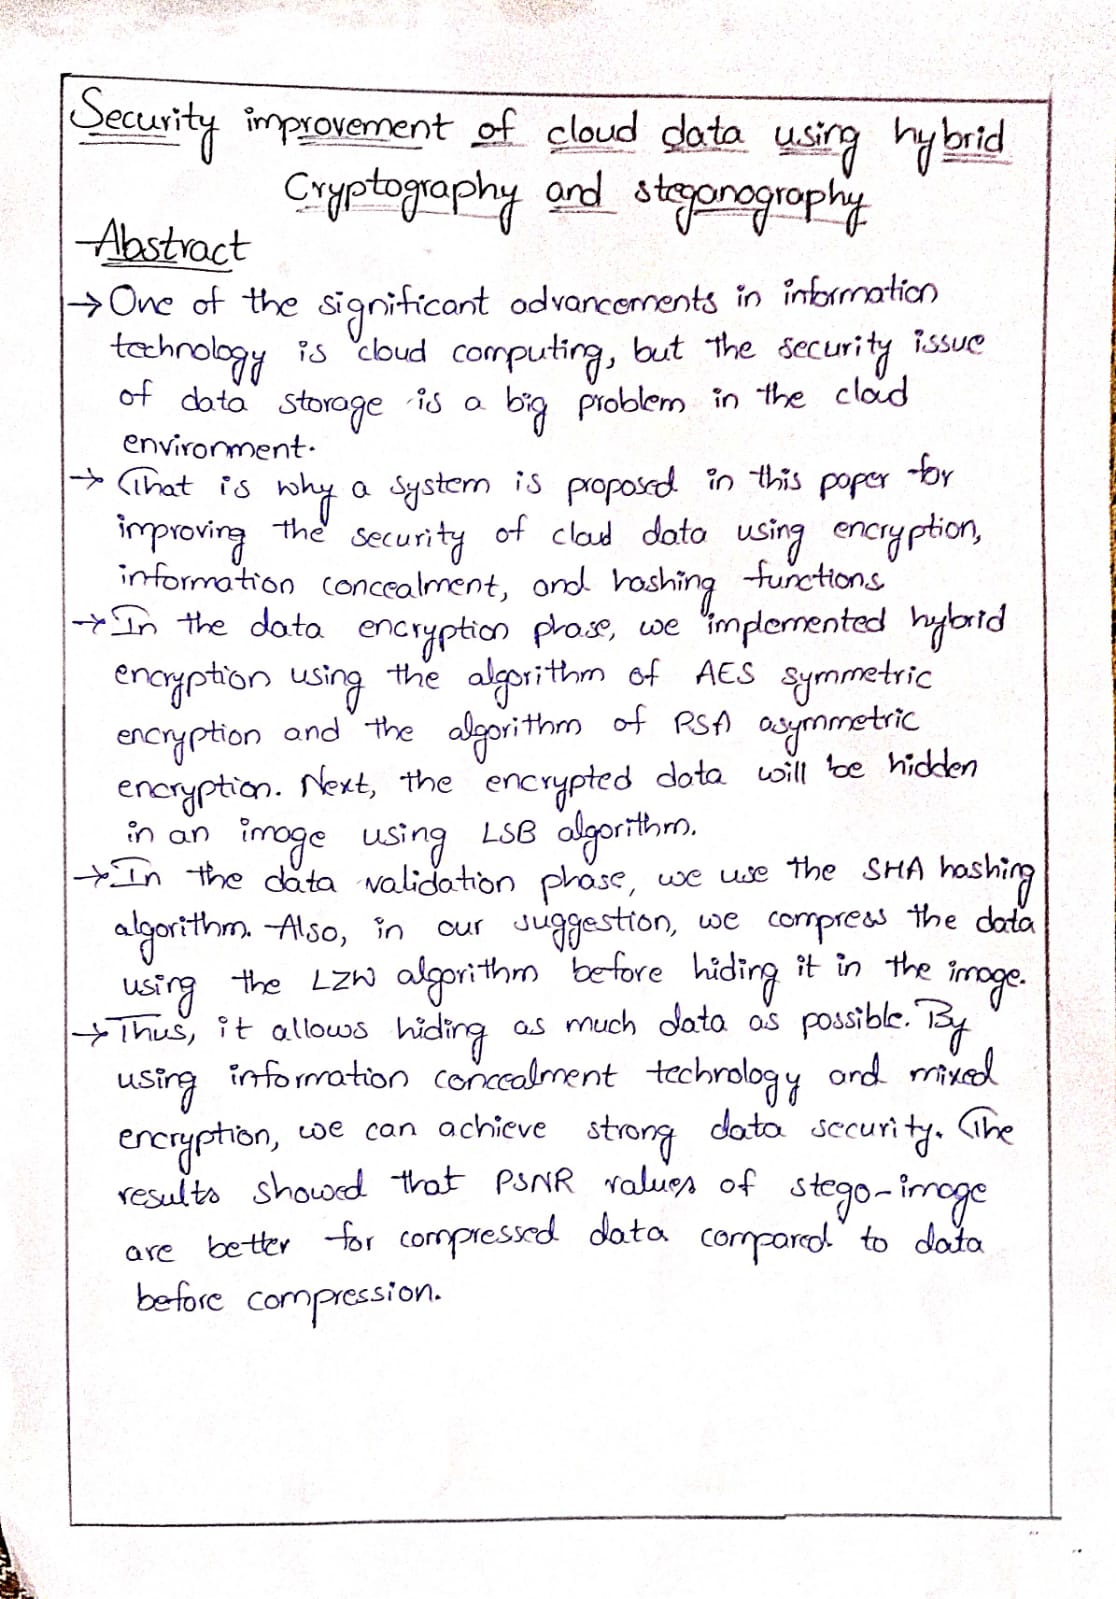 Security improvement of cloud data using hybrid
Cryptography and steganography
Abstract
→ One of the significant advancements in information
technology is cloud computing, but the security issue
of data storage is a big problem in the cloud
environment.
→ That is why a system is proposed in this paper for
improving the security of cloud data using encryption,
information concealment, and hashing functions
→ In the data encryption phase, we implemented hybrid
encryption using the algorithm of AES symmetric
encryption and the algorithm of RSA asymmetric
encryption. Next, the encrypted data will be hidden
in an image using LSB algorithm.
→ In the data validation phase, we use the SHA hashing
algorithm. Also, in our suggestion, we compress the data
using the LZW algorithm before hiding it in the image.
→ Thus, it allows hiding as much data as possible. By
using information concealment technology and mixed
encryption, we can achieve strong data security. The
results showed that PSNR values of stego-image
are better for compressed data compared to data
before compression.